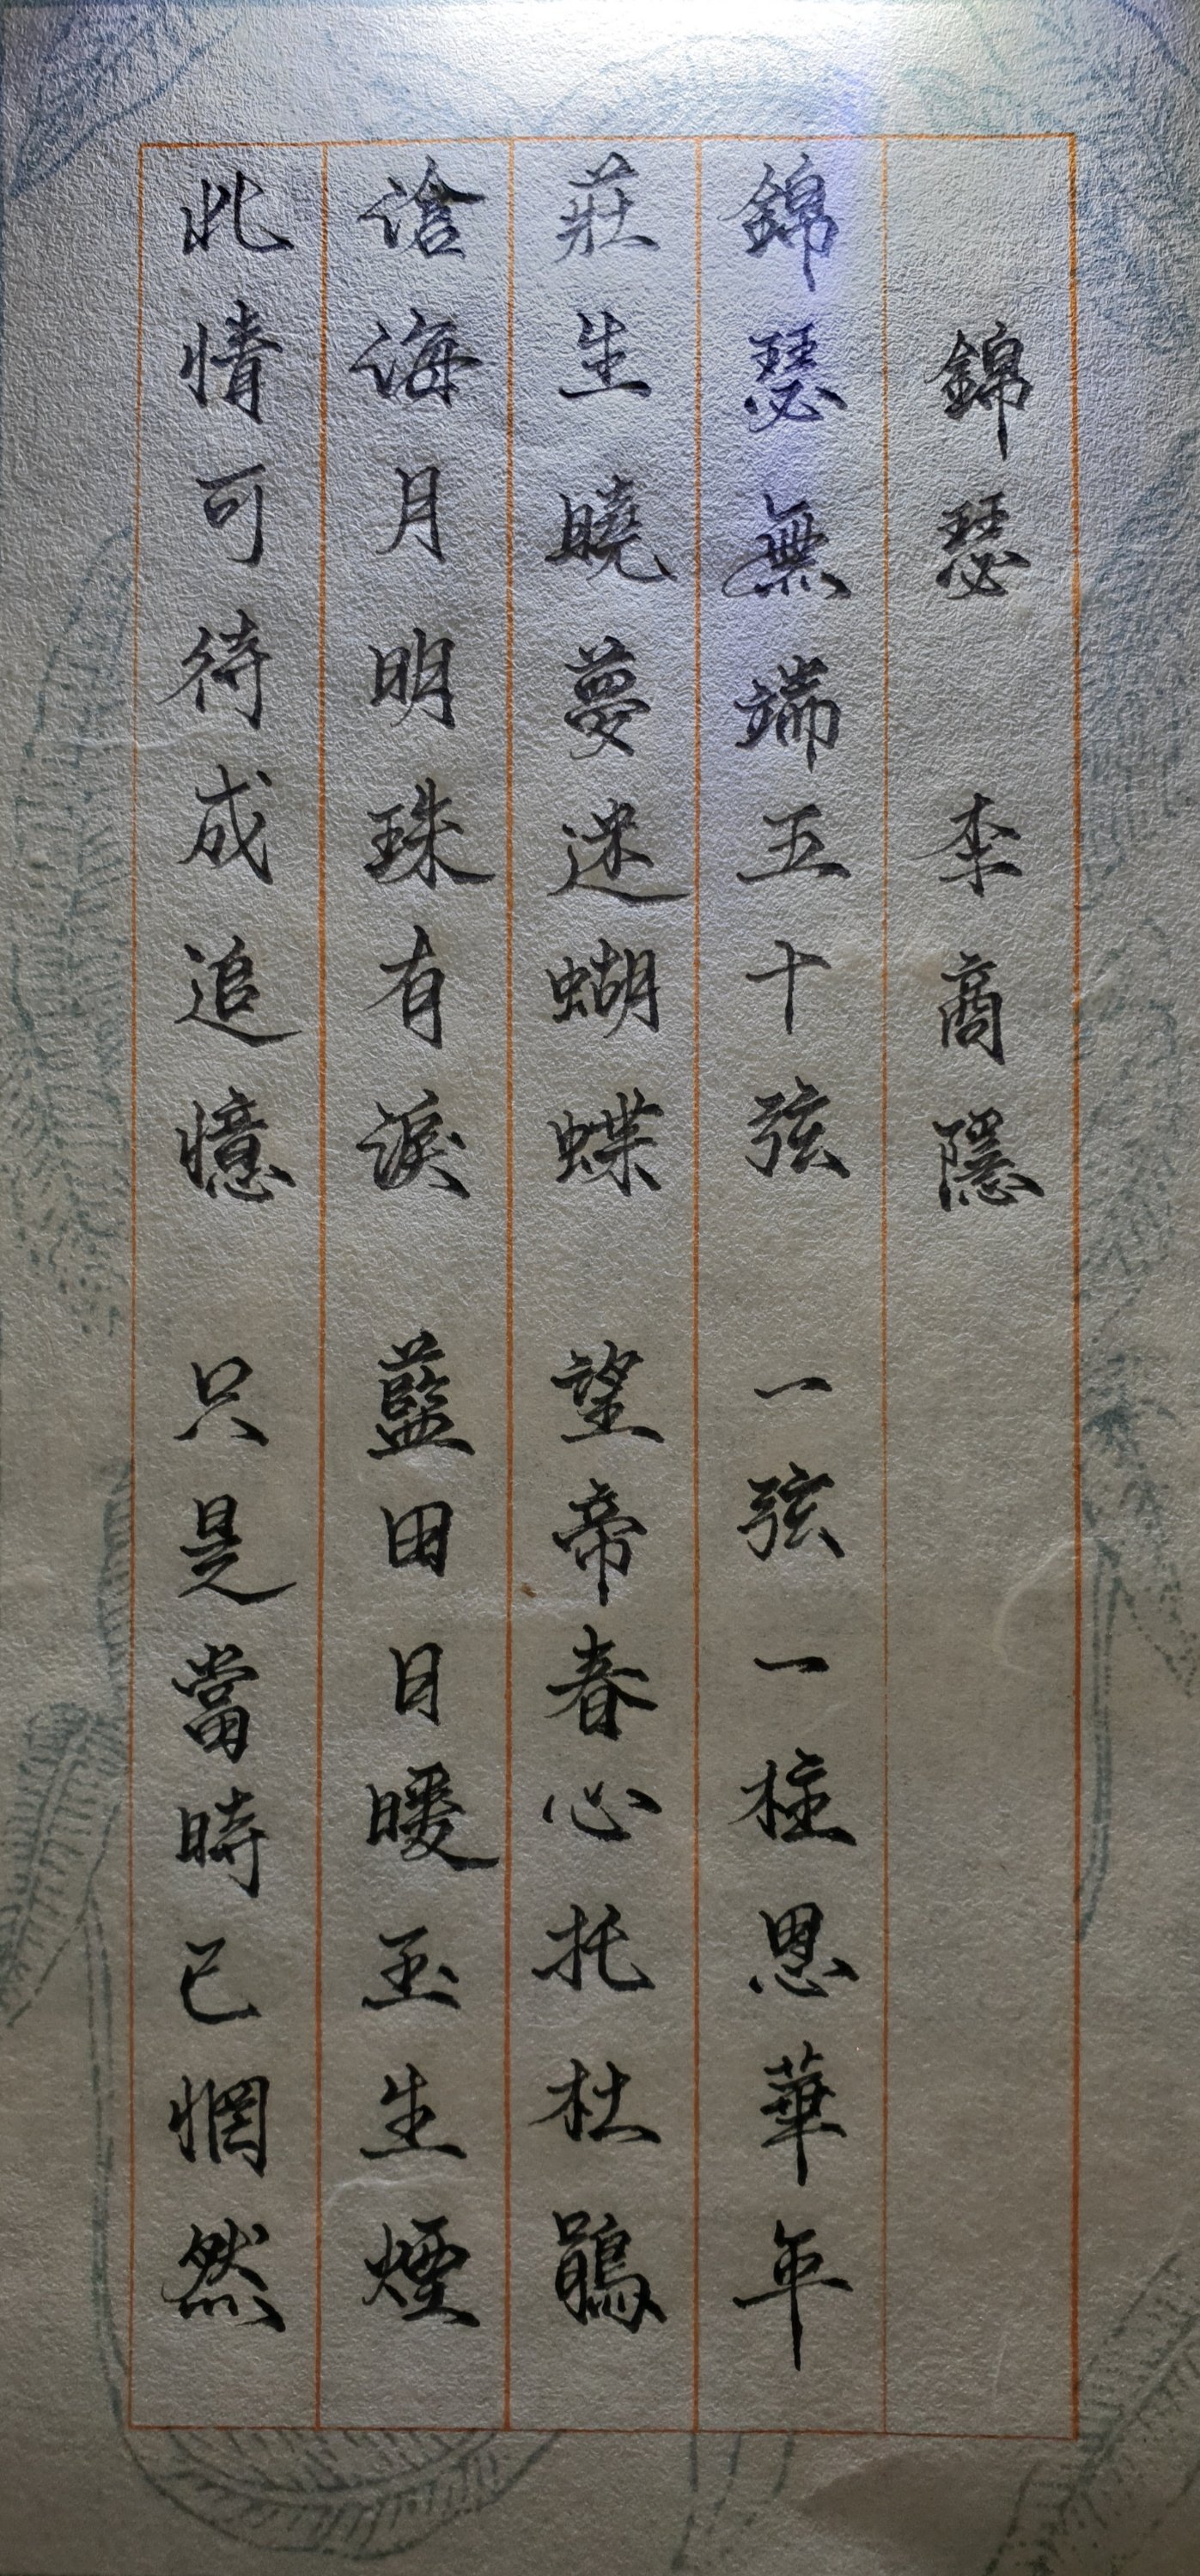 錦瑟 李商隱
錦瑟無端五十弦 一弦一柱思華年
莊生曉夢迷蝴蝶 望帝春心托杜鵑
滄海月明珠有淚 藍田日暖玉生煙
此情可待成追憶 只是當時已惘然